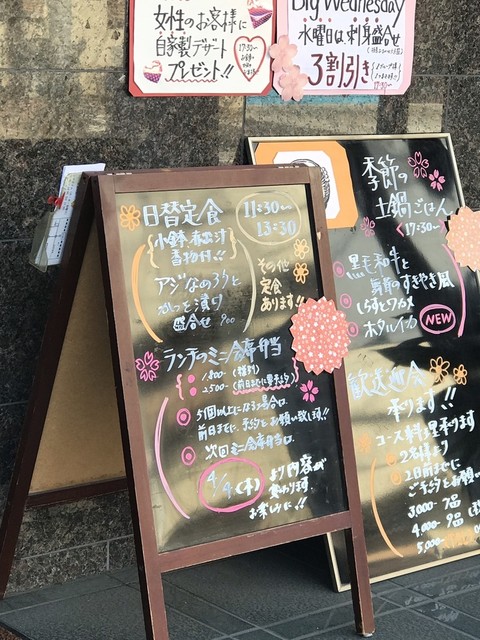 女性のお客様に
自家製デザート
プレゼント!!
17:30〜
Big Wednesday
水曜日は、刺身盛合せ
3割引き
17:30〜
日替定食
11:30〜
13:30
小鉢
香物付!!
アジなめろうと
かつを漬け
盛合せ 900
その他
定食
あります!!
ランチのミニ会席弁当
1,800-
2,500- (前日までに要予約)
5個以上になる場合は、
前日までに、予約をお願い致します!!
次回ミニ会席弁当は、
4/4(木)
より内容が
変わります。
お楽しみに!!
季節の
土鍋ごはん
<17:30〜>
黒毛和牛と
舞茸のすきやき風
しらすとワカメ
ホタルイカ
NEW
歓送迎会
承ります!!
コース料理承ります
2名様より
2日前までに
ご予約をお願い
3,000- 7品
4,000- 9品
5,000-